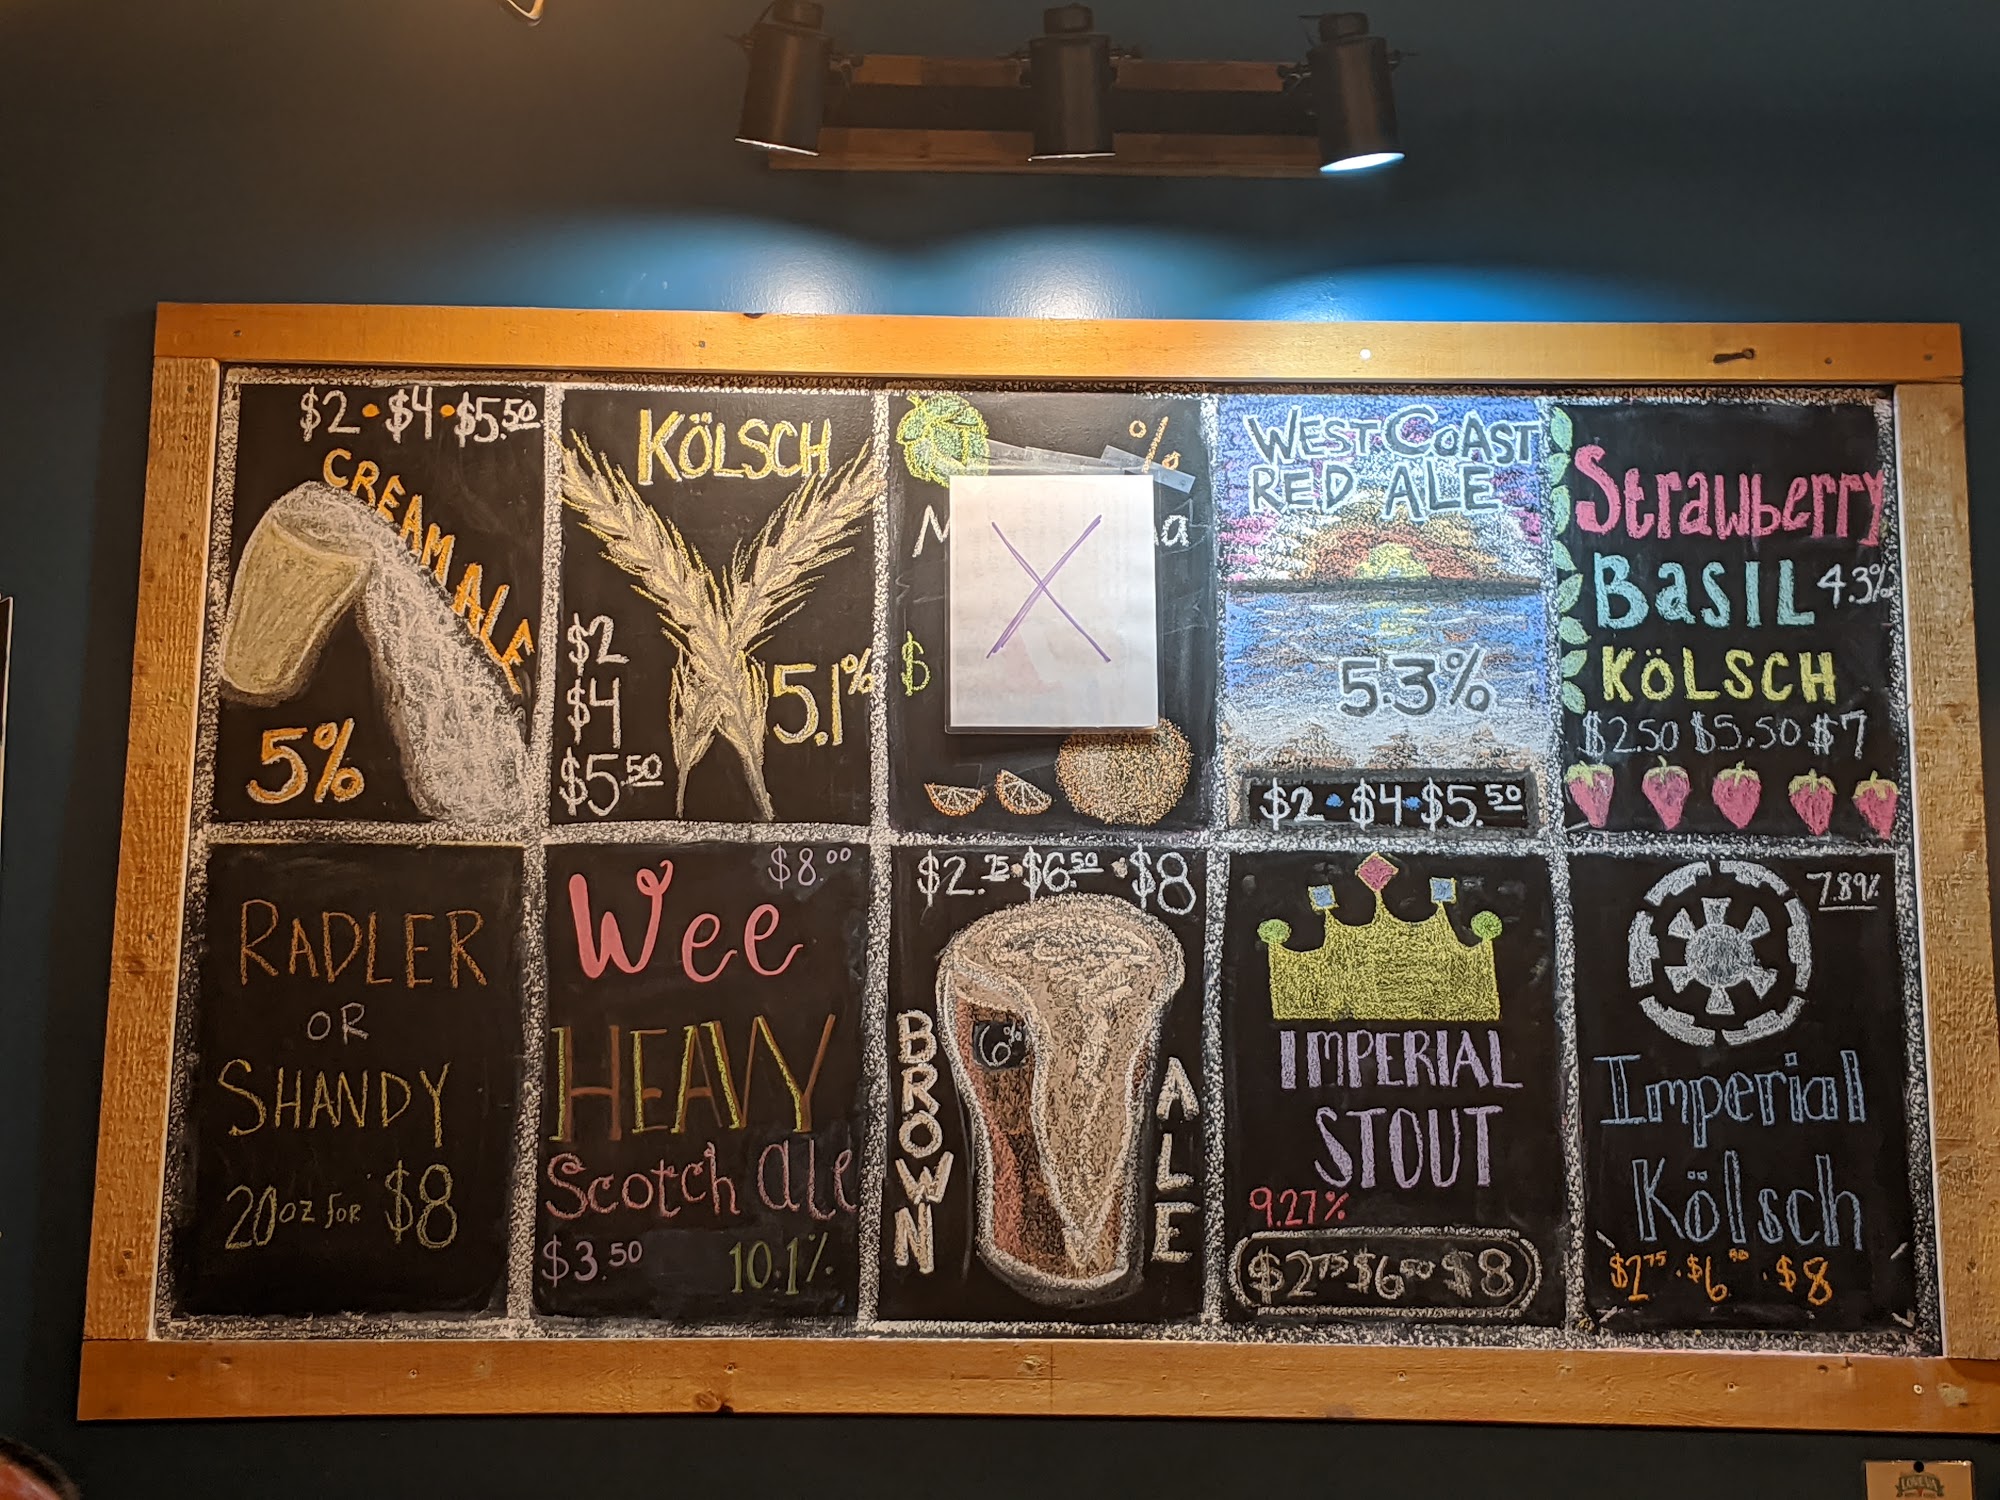 $2 • $4 • $5.50
CREAM ALE
5%
KÖLSCH
$2
$4
$5.50
5.1%
%
$
X
WEST COAST
RED ALE
5.3%
$2 • $4 • $5.50
Strawberry
BASIL 4.3%
KÖLSCH
$2.50 $5.50 $7
RADLER
OR
SHANDY
20oz for $8
$8.00
Wee
HEAVY
Scotch Ale
$3.50 10.1%
$2.75 • $6.50 • $8
BROWN
6%
ALE
IMPERIAL
STOUT
9.27%
$2.75 $6.50 $8
7.89%
Imperial
Kölsch
$2.75 • $6.50 • $8